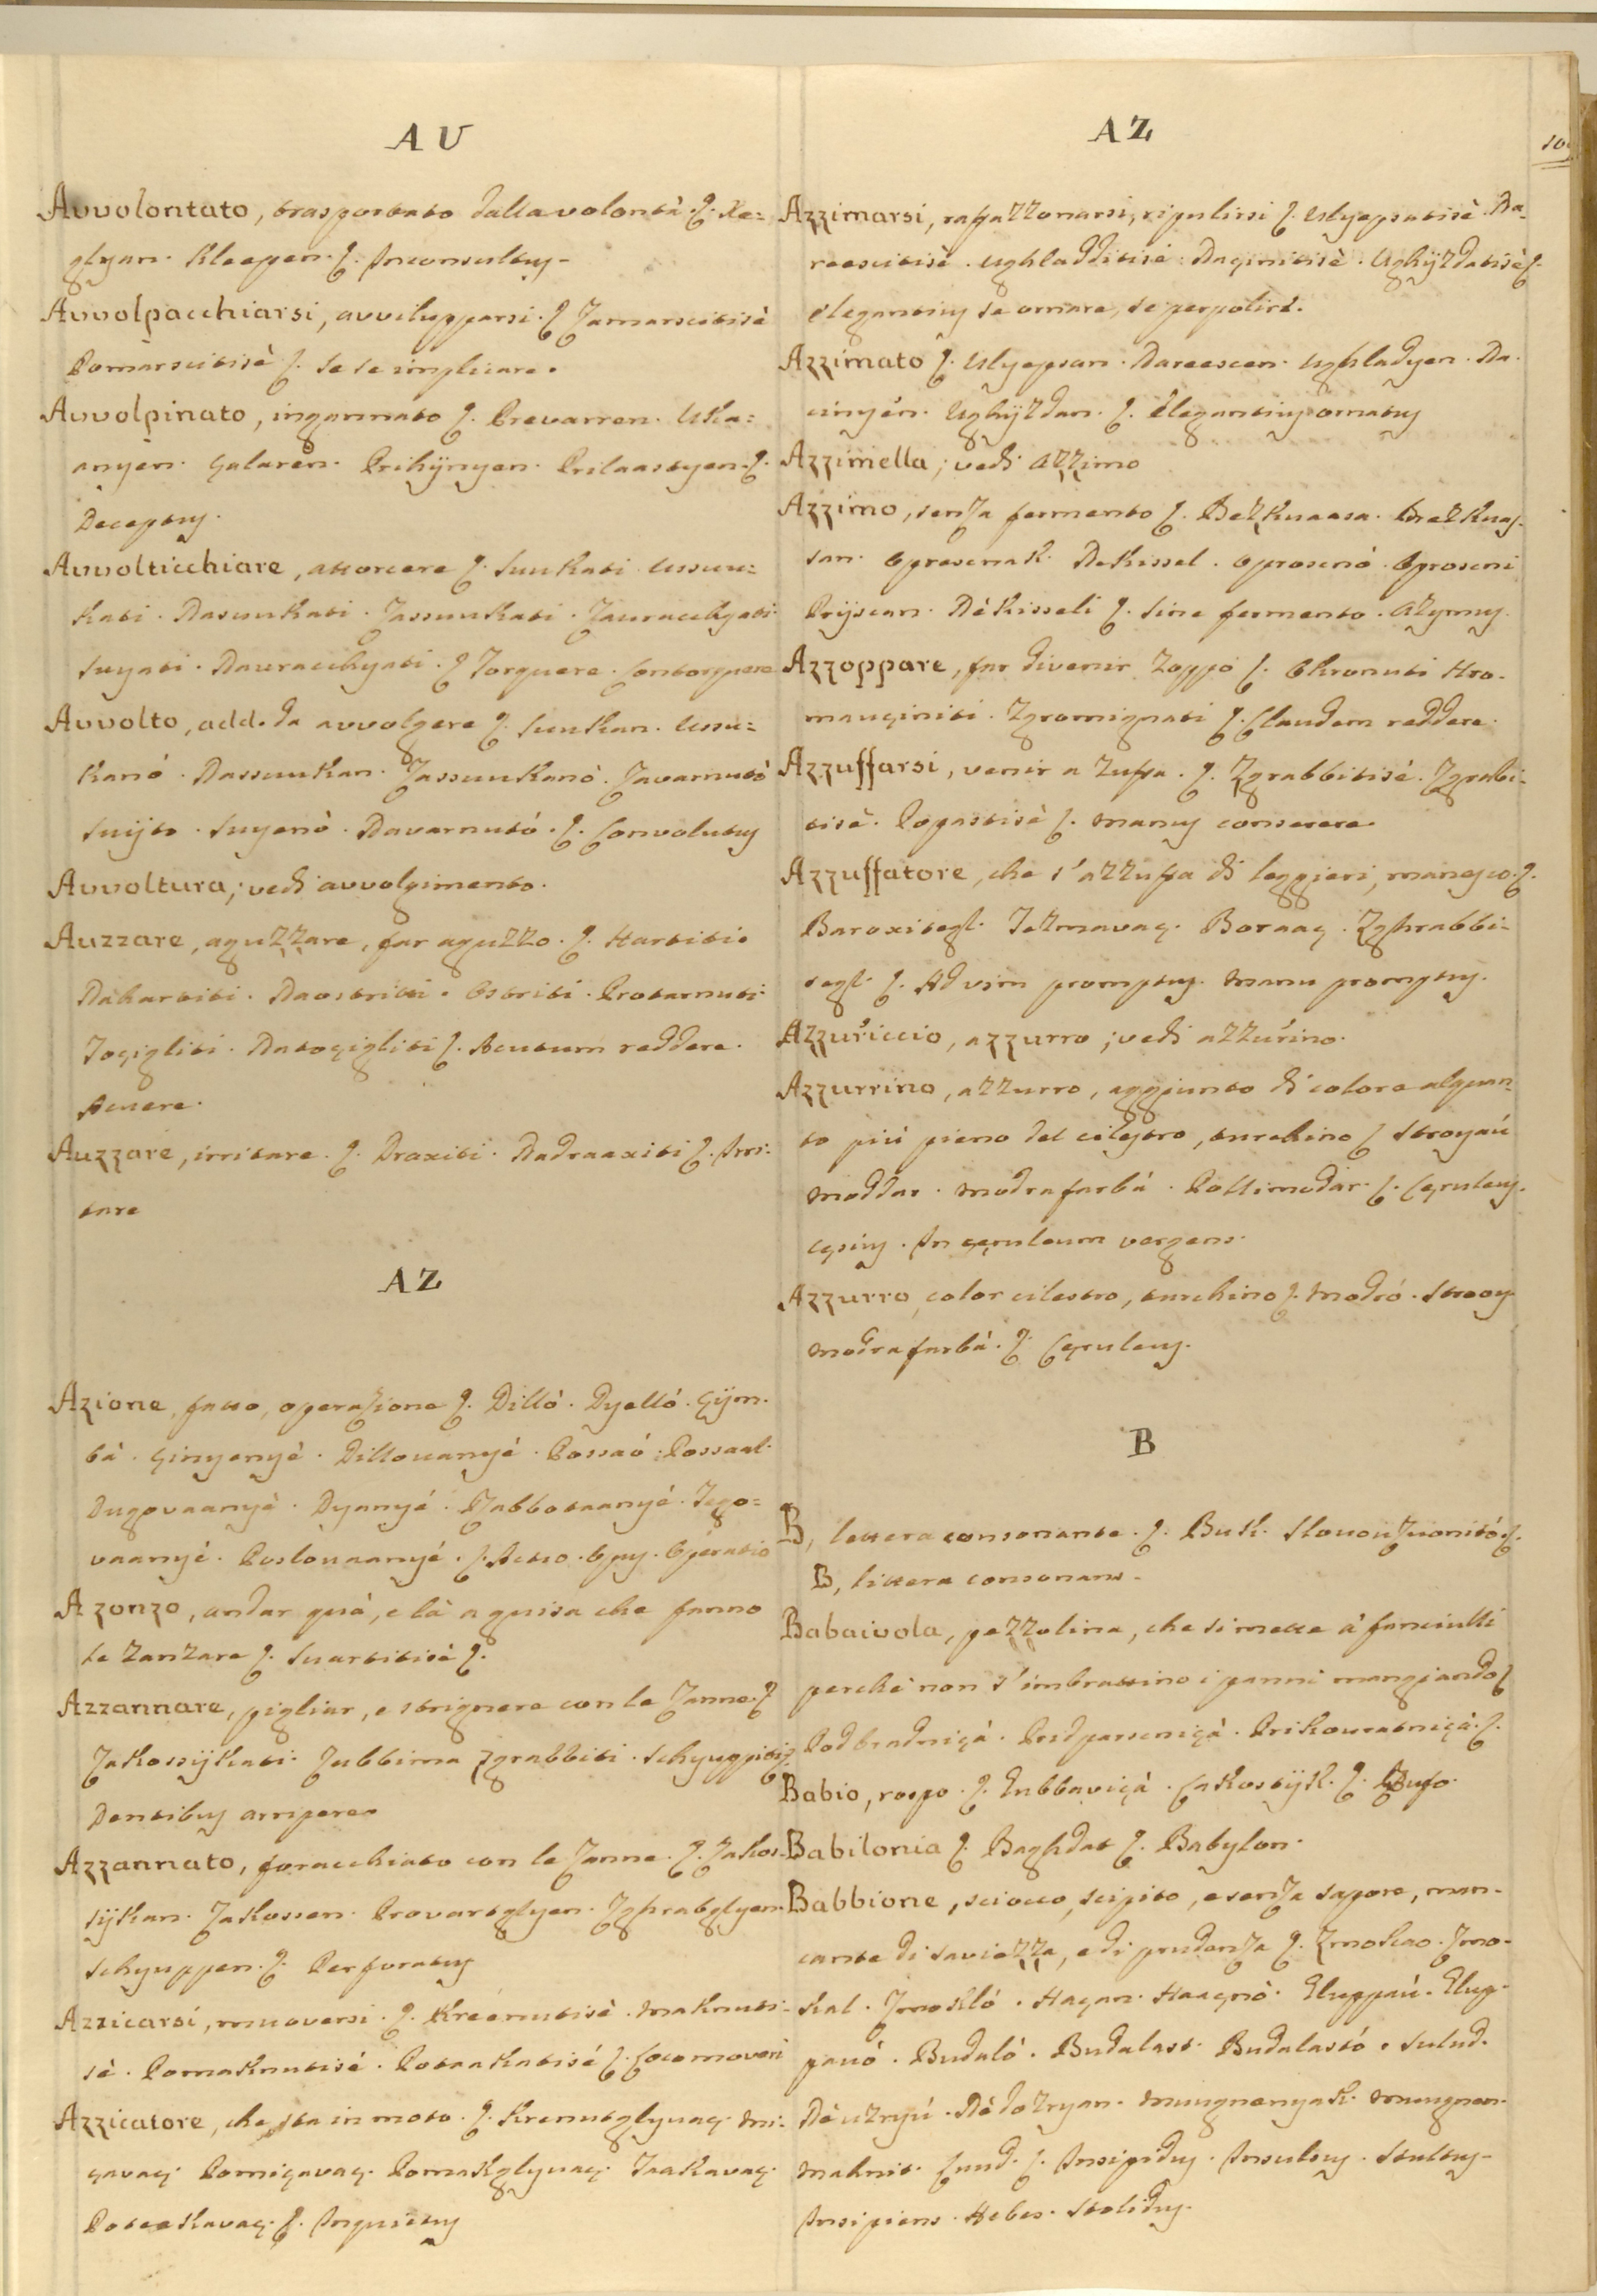 AU
Avvolontato, trasportato dalla volontà. ſ. Xe=
glyan. Kleepen. ſ. Inconsultus.
Avvolpacchiarsi, avvilupparsi. ſ. Zamarscitisè
Pomarscitisè ſ. Se se implicare.
Avvolpinato, ingannato ſ. Prevarren. Uka=
anyen. Çalaren. Prihÿnyen. Prilaastyen. ſ.
Deceptus.
Avvolticchiare, attorcere ſ. Suukati. Ussuu=
kati. Dasuukati. Zassuukati. Zauracchyati.
Suyati. Dauracchyati. ſ. Torquere. Contorquere
Avvolto, add. da avvolgere ſ. Suukan. Ussu=
kanó. Dassuukan. Zassuukanò. Zavarnutò
Suÿto. Suyenò. Davarnutó. ſ. Convolutus
Avvoltura; vedi avvolgimento.
Auzzare, aguzzare, far aguzzo. ſ. Hartiti.
Dahartiti. Daostriti. Ostriti. Protarnuti.
Toçigliti. Datoçigliti ſ. Acutum reddere.
Acuere.
Auzzare, irritare. ſ. Draxiti. Dadraaxiti ſ. Irri-
tare
AZ
Azione, fatto, operazione ſ. Dillò. Dyelló. Çÿm.
bà. Çinyenyè. Dillovanyé. Possaó. Possaal.
Dugovaanyè. Dyanyé. Rabbotaanyé. Tego=
vaanyé. Poslovaanyé. ſ. Actio. Opus. Operatio
A zonzo, andar quà, e là a guisa che fanno
le zanzare ſ. Suartitisè ſ.
Azzannare, pigliar, e strignere con le zanne. ſ
Zakossÿkati. Zubbima zgrabbiti. Schyuppiti ſ.
Dentibus arripere.
Azzannato, foracchiato con le zanne. ſ. Zakos-
sÿkan. Zakossen. Provartglyen. Zghrabglyen.
Schyuppen. ſ. Perforatus
Azzicarsi, muoversi. ſ. Kreenutisè. Maknuti-
sè. Pomaknutisé. Potaakatisé ſ. Loco moveri
Azzicatore, che sta in moto. ſ. Krenutglyuaç. Mi-
çavaç. Pomiçavaç. Pomakglyuaç. Taakavaç.
Potaakavaç. ſ. Inquietus
AZ
Azzimarsi, raffazzonarsi, ripulirsi ſ. Ulyepsatisè. Da-
reescitisè. Ughladditisè. Daçinitisè. Ughÿzdatisè ſ.
Elegantius se ornare, se perpolire.
Azzimato ſ. Ulyepsan. Dareescen. Ughladyen. Da.
cinyén. Ughÿzdan. ſ. Elegantius ornatus
Azzimella; vedi Azzimo
Azzimo, senza fermento ſ. Bezkuaasa. Brezkuas-
san. Opresenak. Dekissel. Oprosenò. Oproseni
Prÿscan. Dèkisseli ſ. Sine fermento. Azymus.
Azzoppare, far divenir zoppo ſ. Ohromuti Hro-
mauçiniti. Zgromignati ſ. Claudem reddere.
Azzuffarsi, venir a zuffa. ſ. Zgrabbitisé. Zgrabi-
tisè. Popastisè ſ. Manus conserere.
Azzuffatore, che s'azzuffa di leggieri, manesco. ſ.
Baroxitegl. Tezmavaç. Boraaç. Zghrabbi-
tegl. ſ. Ad vim promptus. Manu promptus.
Azzurriccio, azzurro; vedi azzurrino.
Azzurrino, azzurro, aggiunto di colore alquan-
to più pieno del cilestro, turchino ſ. Stroyaù
Moddar. Modra farbà. Possimodar. ſ. Cęruleus.
Cęsius. In cęruleum vergens.
Azzurro, color cilestro, turchino ſ. Modró. Strooy
Modra farbà. ſ. Cęruleus.
B
B, lettera consonante. ſ. Buk. Slovou zvonitó. ſ.
B, littera consonans.
Babaivola, pezzolina, che si mette à fanciulli
perchè non s'imbrattino i panni mangiando ſ
Podbradniçà. Pridparsciniçà. Prikouratniçà. ſ.
Babio, rospo. ſ. Gubbaviçà. Cakostÿk. ſ. Bufo.
Babilonia ſ. Baghdat ſ. Babylon.
Babbione, sciocco, scipito, e senza sapore, man-
cante di saviezza, e di prudenza ſ. Zmokao. Zmo-
kal. Zmokló. Haçan. Haaçnò. Gluppaú. Glup-
pauó. Budalò. Budalast. Budalastó. Sulud.
Dèuznyú. Dèdoznyan. Muugnenyak. Muugnen.
Mahnit. Luud. ſ. Insipidus. Insulsus. Stultus.
Insipiens. Hebes. Stolidus.